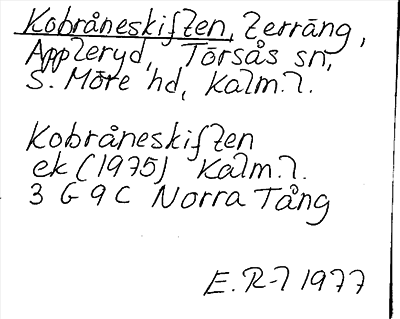 Kobråneskiften, terräng,
Appleryd, Torsås sn,
S. Möre hd, Kalm. l.
Kobråneskiften
ek (1975) Kalm. l.
3 G 9 C Norra Tång
E. R-l 1977